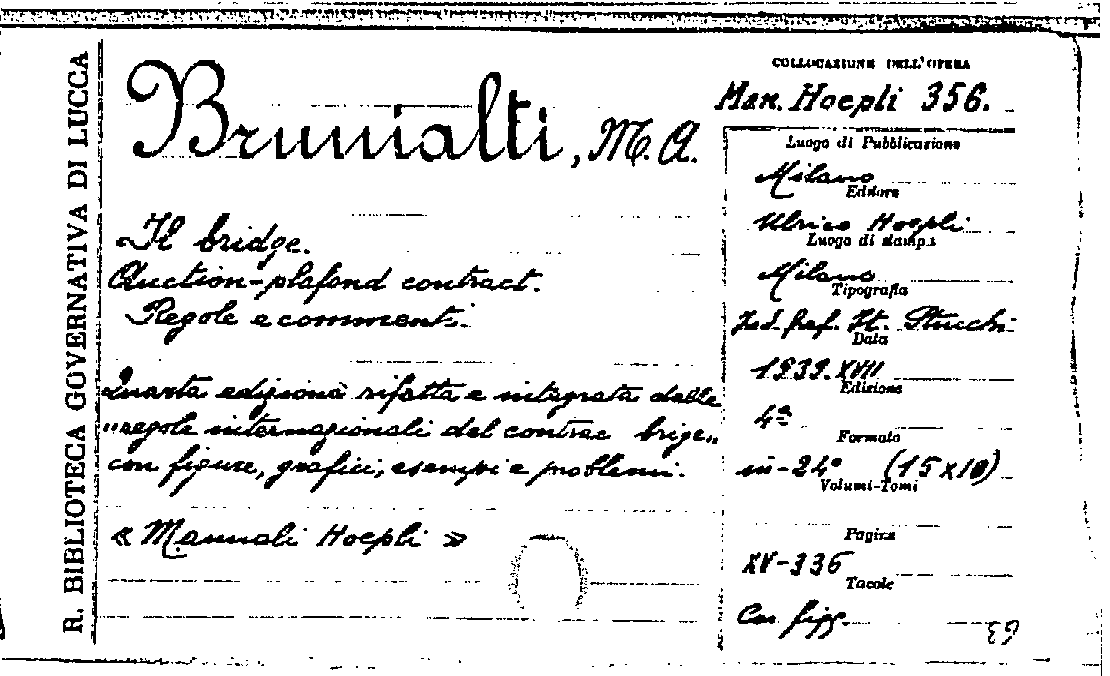 R. BIBLIOTECA GOVERNATIVA DI LUCCA
Brunialti, M. A.
Il bridge.
Auction-plafond contract.
Regole e commenti.
Quarta edizione rifatta e integrata dalle
"regole internazionali del contrac brige"
con figure, grafici, esempi e problemi.
« Manuali Hoepli »
COLLOCAZIONE DELL'OPERA
Man. Hoepli 356.
Luogo di Pubblicazione
Milano
Editore
Ulrico Hoepli
Luogo di stampa
Milano
Tipografia
St. Stucchi
Data
1939. XVII
Edizione
4ª
Formato
in-24° (15 x 10)
Volumi-Tomi
Pagine
XV-336
Tavole
Con figg.